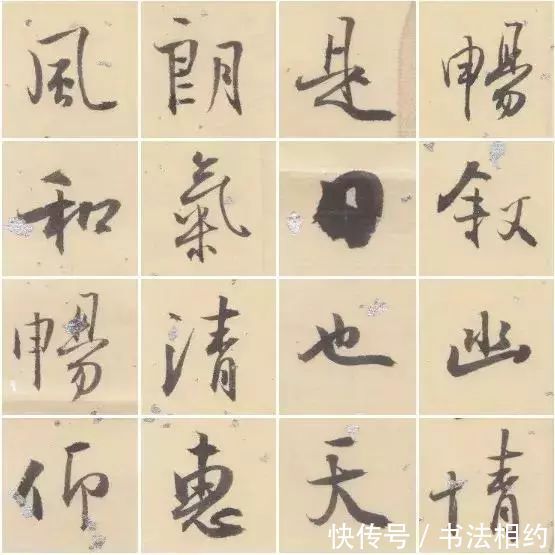 暢叙幽情
是日也天
朗氣清惠
風和暢仰
快传号/书法相约